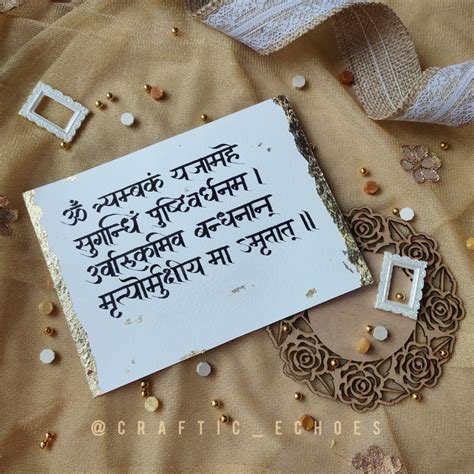 ॐ त्र्यम्बकं यजामहे
सुगन्धिं पुष्टिवर्धनम ।
उर्वारुकमिव वन्धनान्
मृत्योर्मुक्षीय मा ऽमृतात् ॥
@CRAFTIC_ECHOES